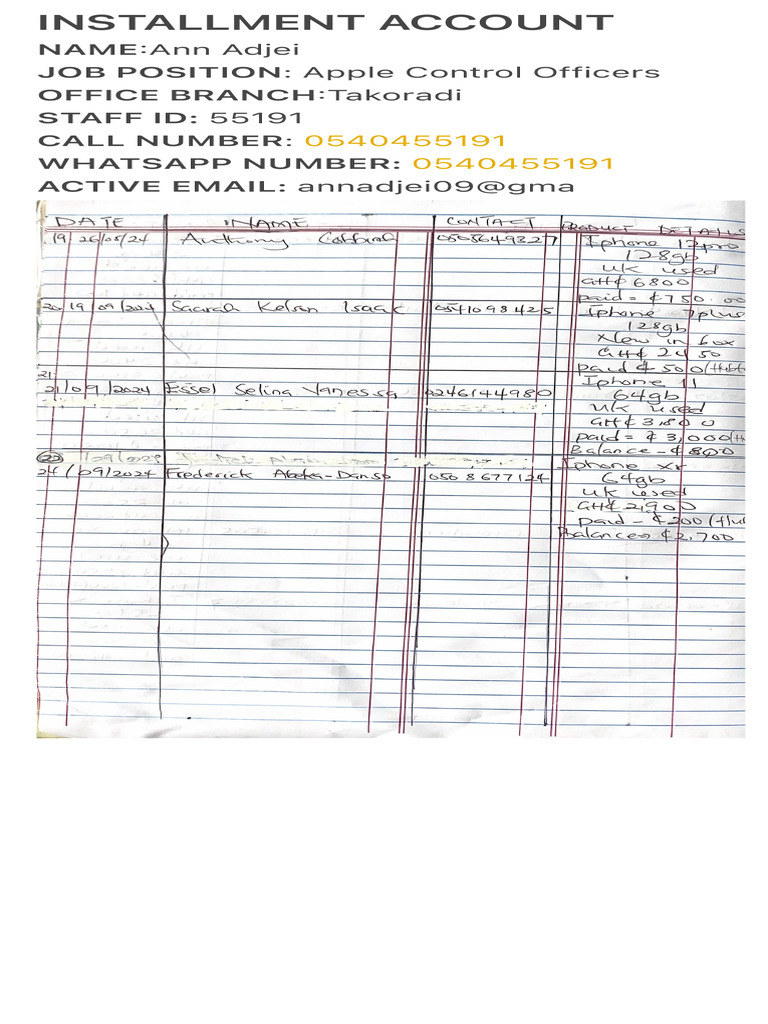 INSTALLMENT ACCOUNT
NAME:Ann Adjei
JOB POSITION: Apple Control Officers
OFFICE BRANCH:Takoradi
STAFF ID: 55191
CALL NUMBER: 0540455191
WHATSAPP NUMBER: 0540455191
ACTIVE EMAIL: annadjei09@gma
DATE NAME CONTACT PRODUCT DETAILS
19 26/08/24 Anthony 0505649327 Iphone 12pro
128gb
UK used
GH¢ 6800
paid = ¢750.00
20 19/09/2024 Saarah Kelson Isaac 0541098425 Iphone 7plus
128gb
New in box
GH¢ 2450
paid ¢ 500
21
21/09/2024 Essel Selina Vanessa 0246144980 Iphone 11
64gb
UK used
GH¢ 3,800
paid = ¢3,000
Balance - ¢800
24/09/2024 Frederick Danso 0508677124 Iphone xr
64gb
UK used
GH¢ 2,900
paid - ¢200
Balance = ¢2,700